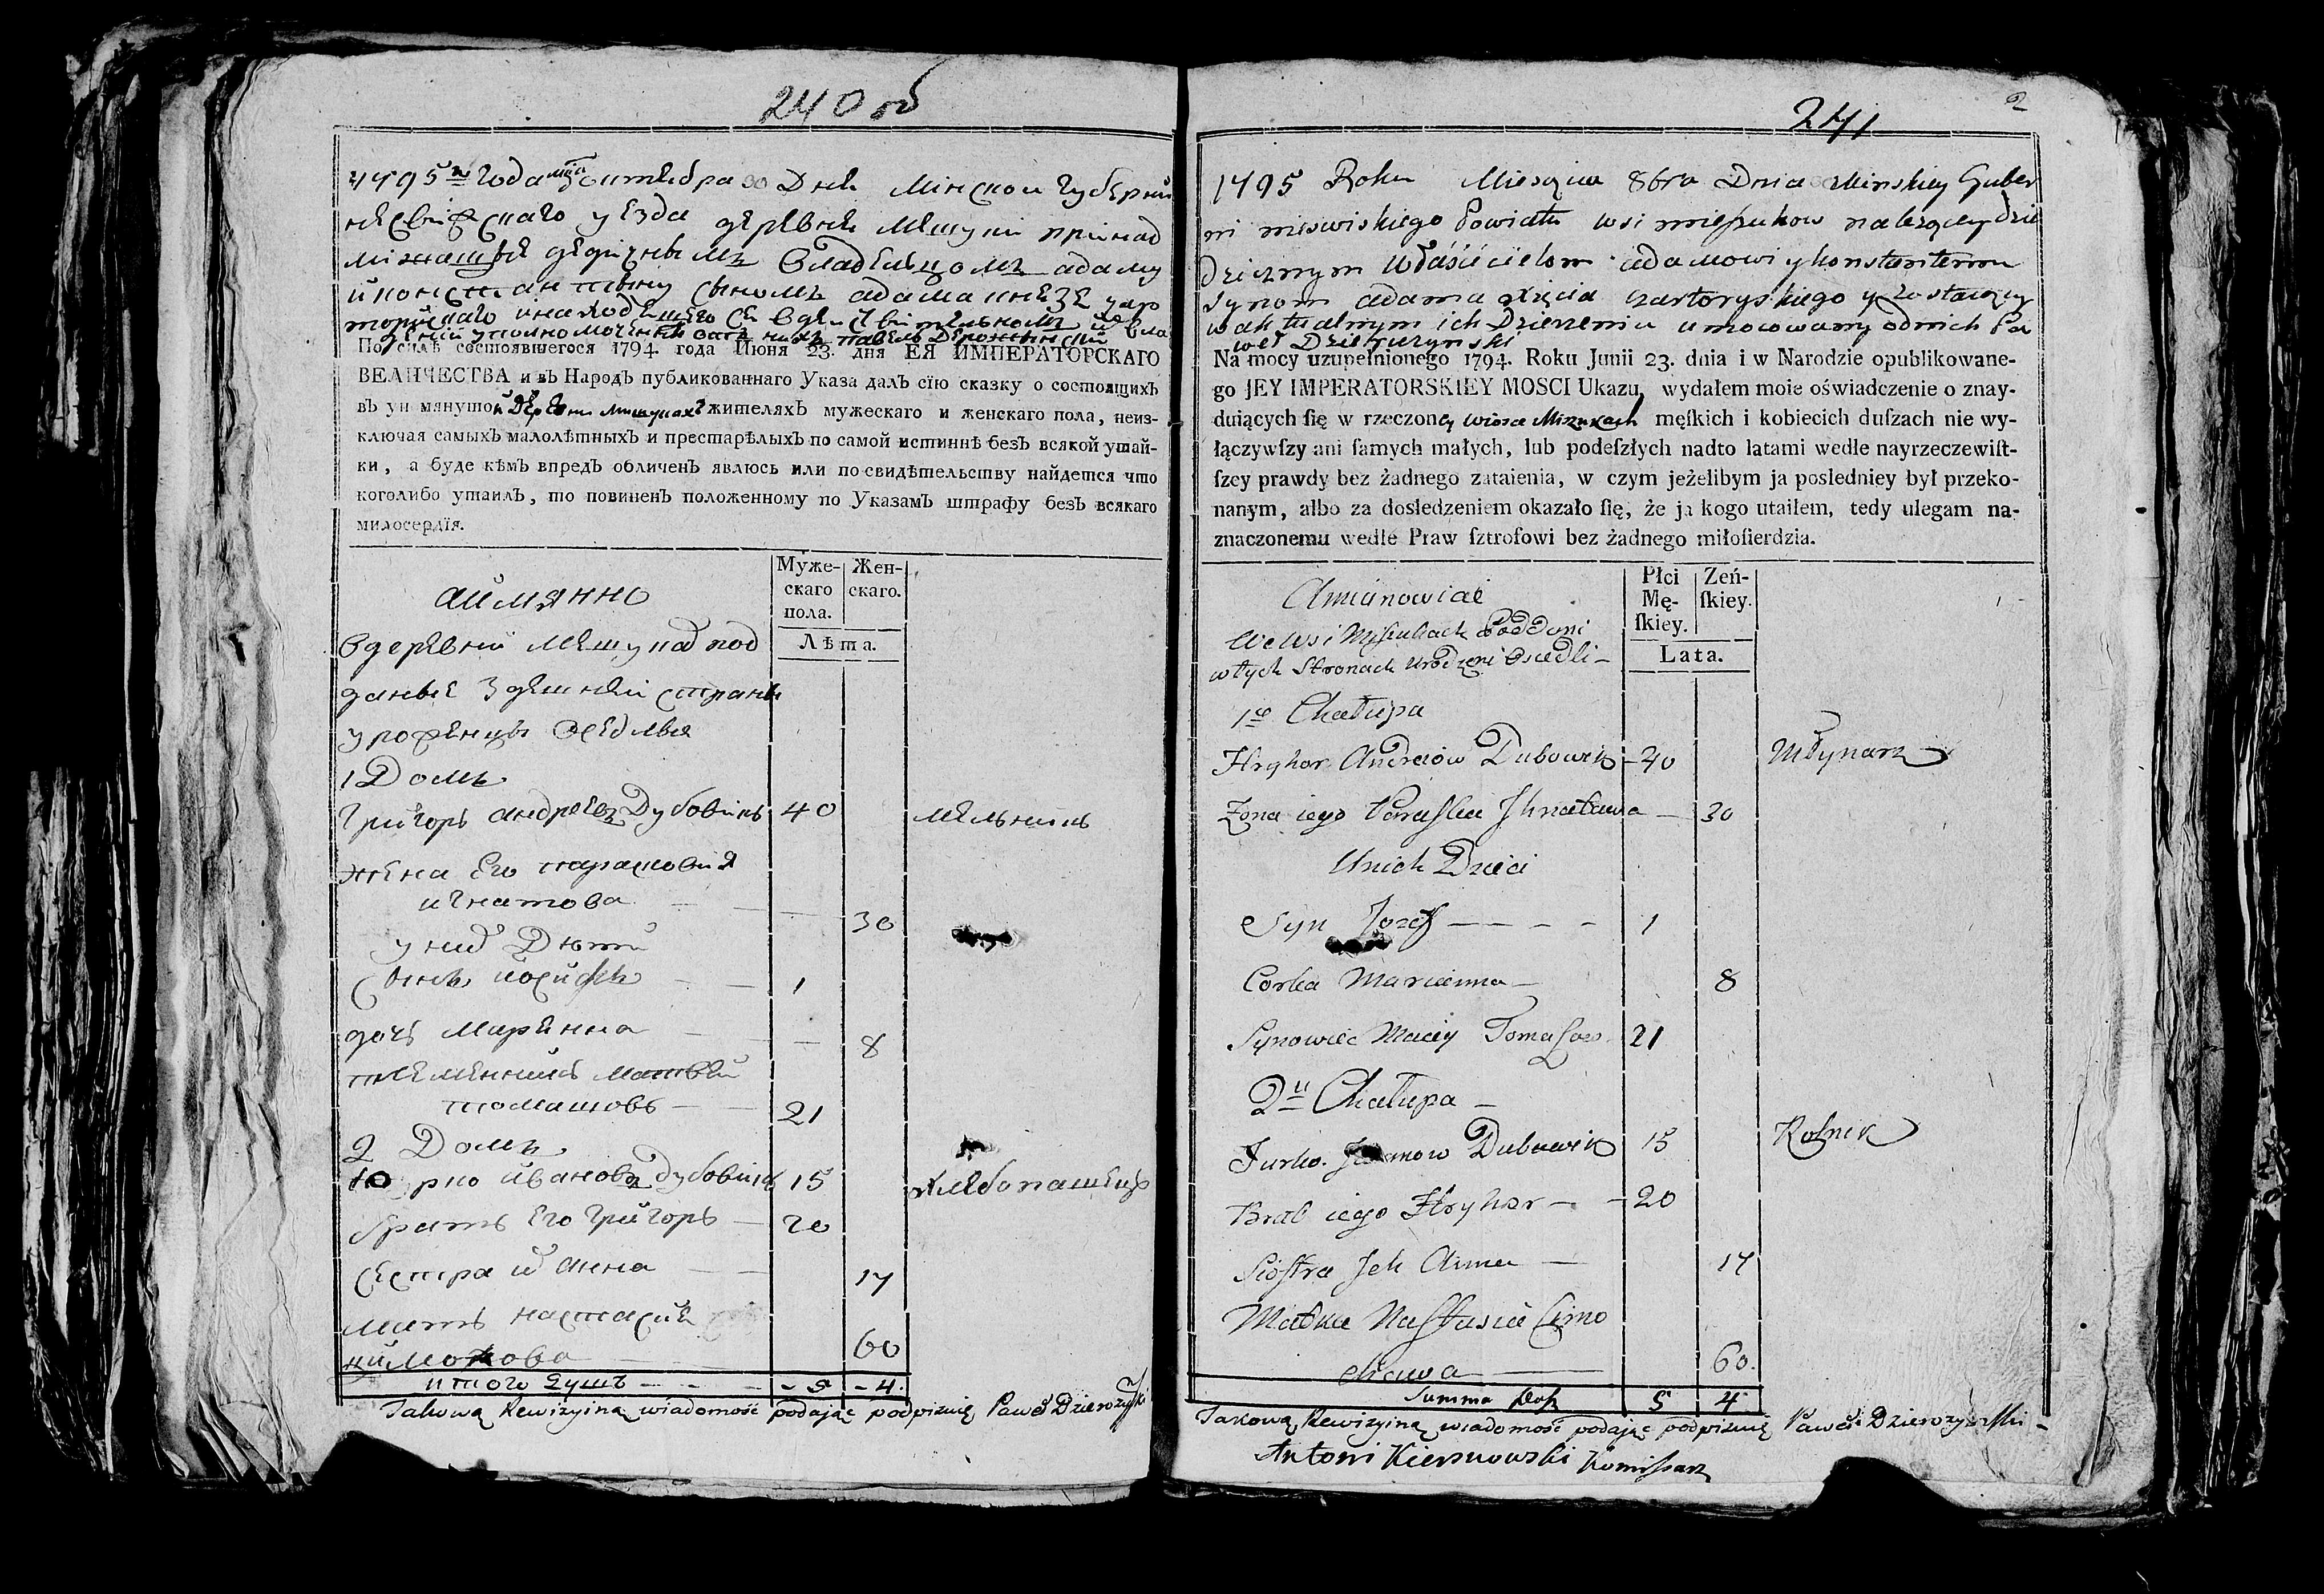 240 об
1795го Года мца октебра 30 Дня Минской Губернии
несвижского уезда деревне Мешуки принад
лежащые дедичным владельцом адаму
и константыну сыном адама князе чар
торийского
По силѣ состоявшегося 1794. года Июня 23. дня ЕЯ ИМПЕРАТОРСКАГО
ВЕЛИЧЕСТВА и въ Народъ публикованнаго Указа далъ сїю сказку о состоящихъ
въ упомянутой Деревни Мишуках жителяхъ мужескаго и женскаго пола, неиз-
ключая самыхъ малолѣтныхъ и престарѣлыхъ по самой истиннѣ безъ всякой утай-
ки, а буде кѣмъ впредъ обличенъ явлюсь или по свидѣтельству найдется что
коголибо утаилъ, то повиненъ положенному по Указамъ штрафу безъ всякаго
милосердїя.
аимянно
Муже-
скаго
пола.
Жен-
скаго.
Лѣта.
в деревни Мешуках под
даные здешней страны
уроженцы оседлыя
1 Домъ
Григоръ андреевъ Дубовикъ 40 мельникъ
жена Его парасковия
игнатова 30
у них Дети
сынъ иосифъ 1
дочъ Марянна 8
племенникъ Матвей
томашовъ 21
2 Домъ
Юрко ивановъ дубовикъ 15 хлебопашецъ
братъ Его Григоръ 20
сестра их анна 17
мать настасия
60
итого душъ - 5 - 4.
Takową Rewizyiną wiadomość podaiąc podpisuię Paweł Dzierożyński
241
2
1795 Roku Miesąca 8bra Dnia 30 Minskiey Guber
ni nieswiskiego Powiatu wsi miszukow należącey dzie
dzicznym Właścicielom adamowi y konstantemu
synom adama xięcia czartoryskiego y zostaiący
w aktualnym ich Dzierzeniu umocowany od nich Pa
weł Dzierożynski
Na mocy uzupełnionego 1794. Roku Junii 23. dnia i w Narodzie opublikowane-
go JEY IMPERATORSKIEY MOSCI Ukazu, wydałem moie oświadczenie o znay-
duiących ſię w rzeczoney wiosce Miszukach męſkich i kobiecich duſzach nie wy-
łączywſzy ani ſamych małych, lub podeſzłych nadto latami wedle nayrzeczewiſt-
ſzey prawdy bez żadnego zataienia, w czym jeżelibym ja posledniey był przeko-
nanym, albo za dosledzeniem okazało ſię, że ja kogo utaiłem, tedy ulegam na-
znaczonemu wedle Praw ſztrofowi bez żadnego miłoſierdzia.
Amianowicie
Płci
Mę-
ſkiey.
Zeń-
ſkiey.
Lata.
We Wsi Miszukach Poddani
w tych Stronach urodzeni Osiedli
1a Chałupa
Hryhor Andreiow Dubowik 40 Młynarz
Zona iego Paraska Ihnatawa 30
Unich Dzieci
Syn Jozef 1
Corka Marianna 8
Synowiec Maciey Tomaszow 21
2a Chałupa
Jurko Iwanow Dubowik 15 Rolnik
Brat iego Hryhor 20
Siostra Jch Anna 17
Matka Nastasia Cimo
chawa 60.
Summa Dusz 5 4
Takową Rewizyiną wiadomość podaiąc podpisuię Paweł Dzierożyński
Antoni Kiersnowski Komissarz